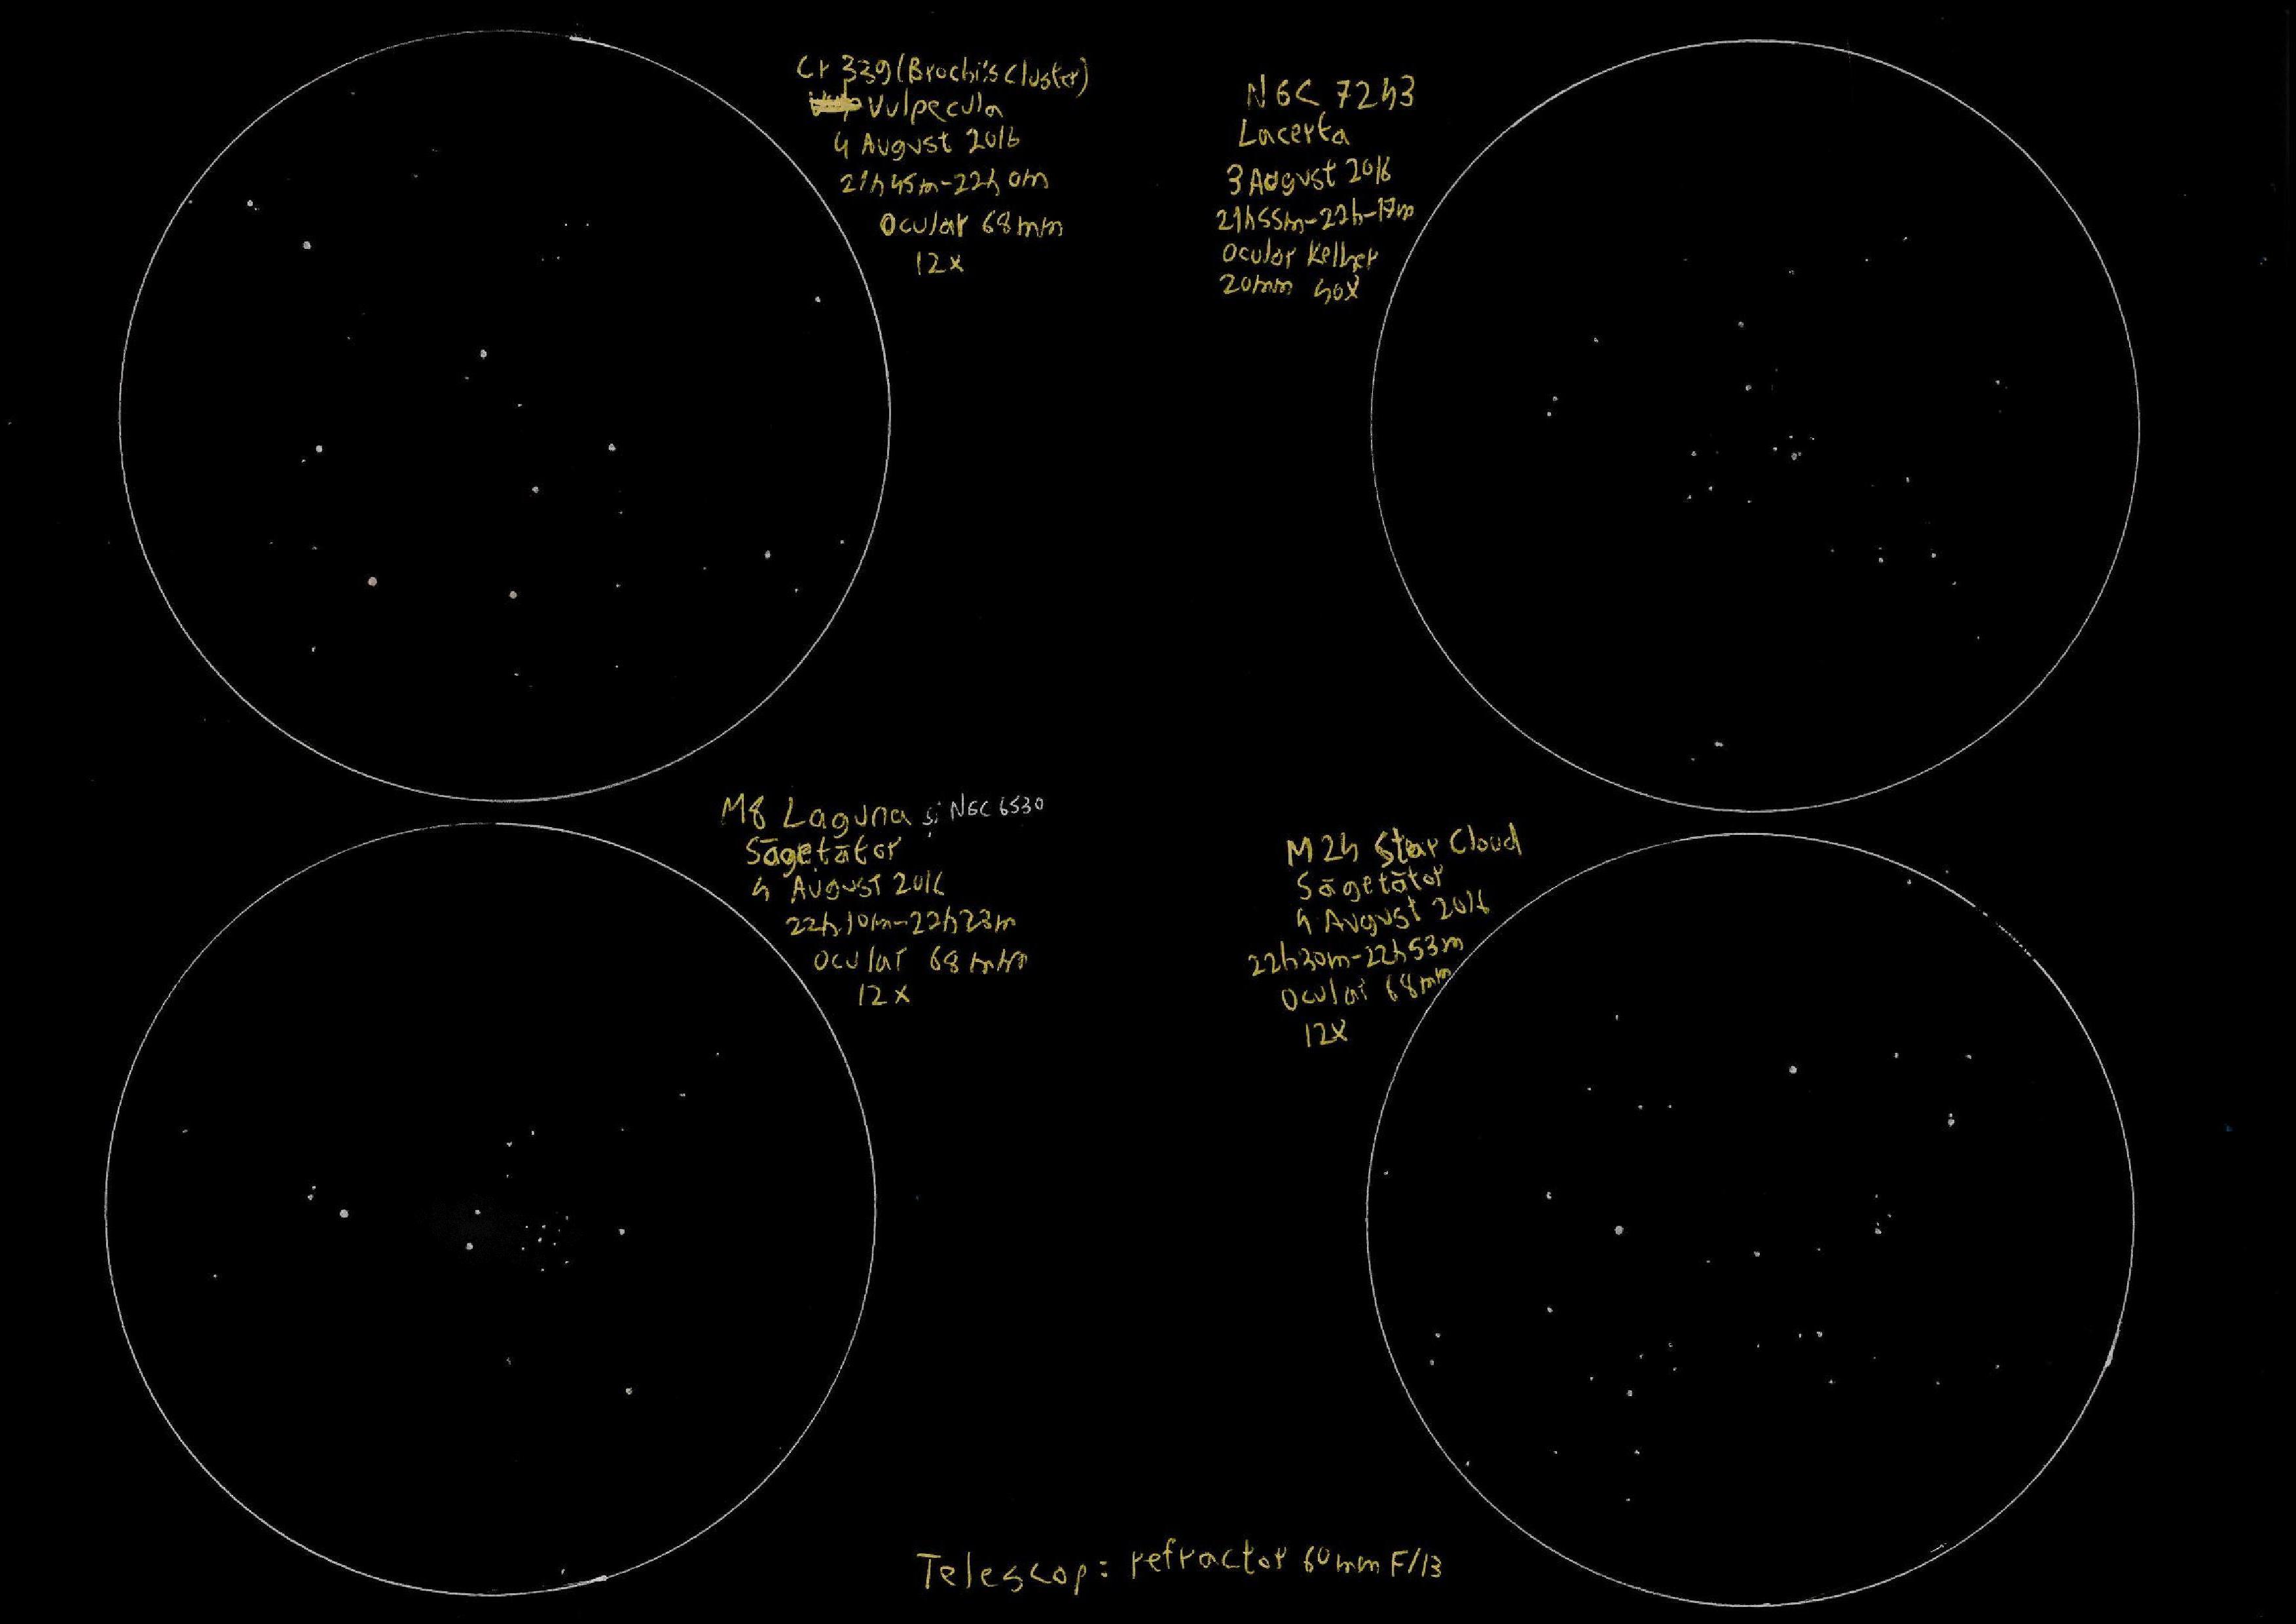 Cr 339 (Brochi's Cluster)
Vulpecula
4 August 2016
21h45m-22h0m
Ocular 68mm
12x
NGC 7243
Lacerta
3 August 2016
21h55m-22h-17m
Ocular Kellner
20mm 40x
M8 Laguna și NGC 6530
Săgetător
4 August 2016
22h10m-22h23m
Ocular 68mm
12x
M24 Star Cloud
Săgetător
4 August 2016
22h30m-22h53m
Ocular 68mm
12x
Telescop: refractor 60mm F/13